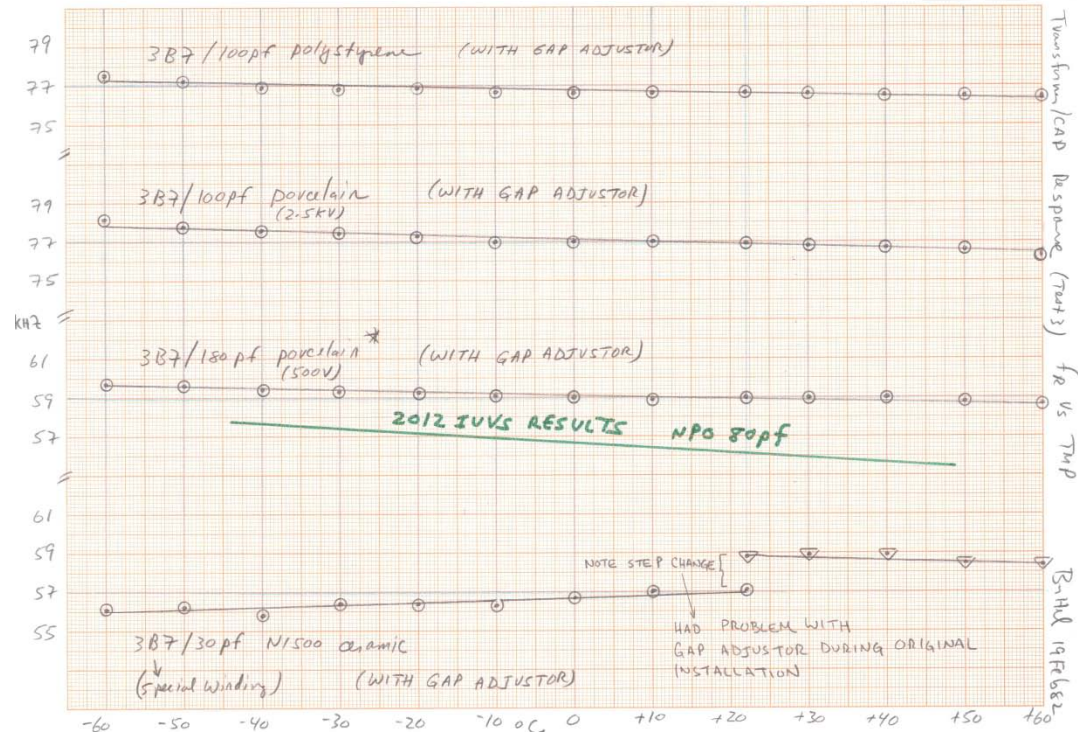 79
3B7/100pf polystyrene (WITH GAP ADJUSTOR)
77
75
79
3B7/100pf porcelain (WITH GAP ADJUSTOR)
(2.5KV)
77
75
KHZ
61
3B7/180pf porcelain* (WITH GAP ADJUSTOR)
(500V)
59
2012 IUVS RESULTS NPO 80pf
57
61
59
NOTE STEP CHANGE
57
55
HAD PROBLEM WITH
GAP ADJUSTOR DURING ORIGINAL
INSTALLATION
3B7/30pf N1500 ceramic
(Special Winding) (WITH GAP ADJUSTOR)
-60 -50 -40 -30 -20 -10 °C 0 +10 +22 +30 +40 +50 +60
Transform/CAP Response (Test 3) fR Vs TMP
19Feb82